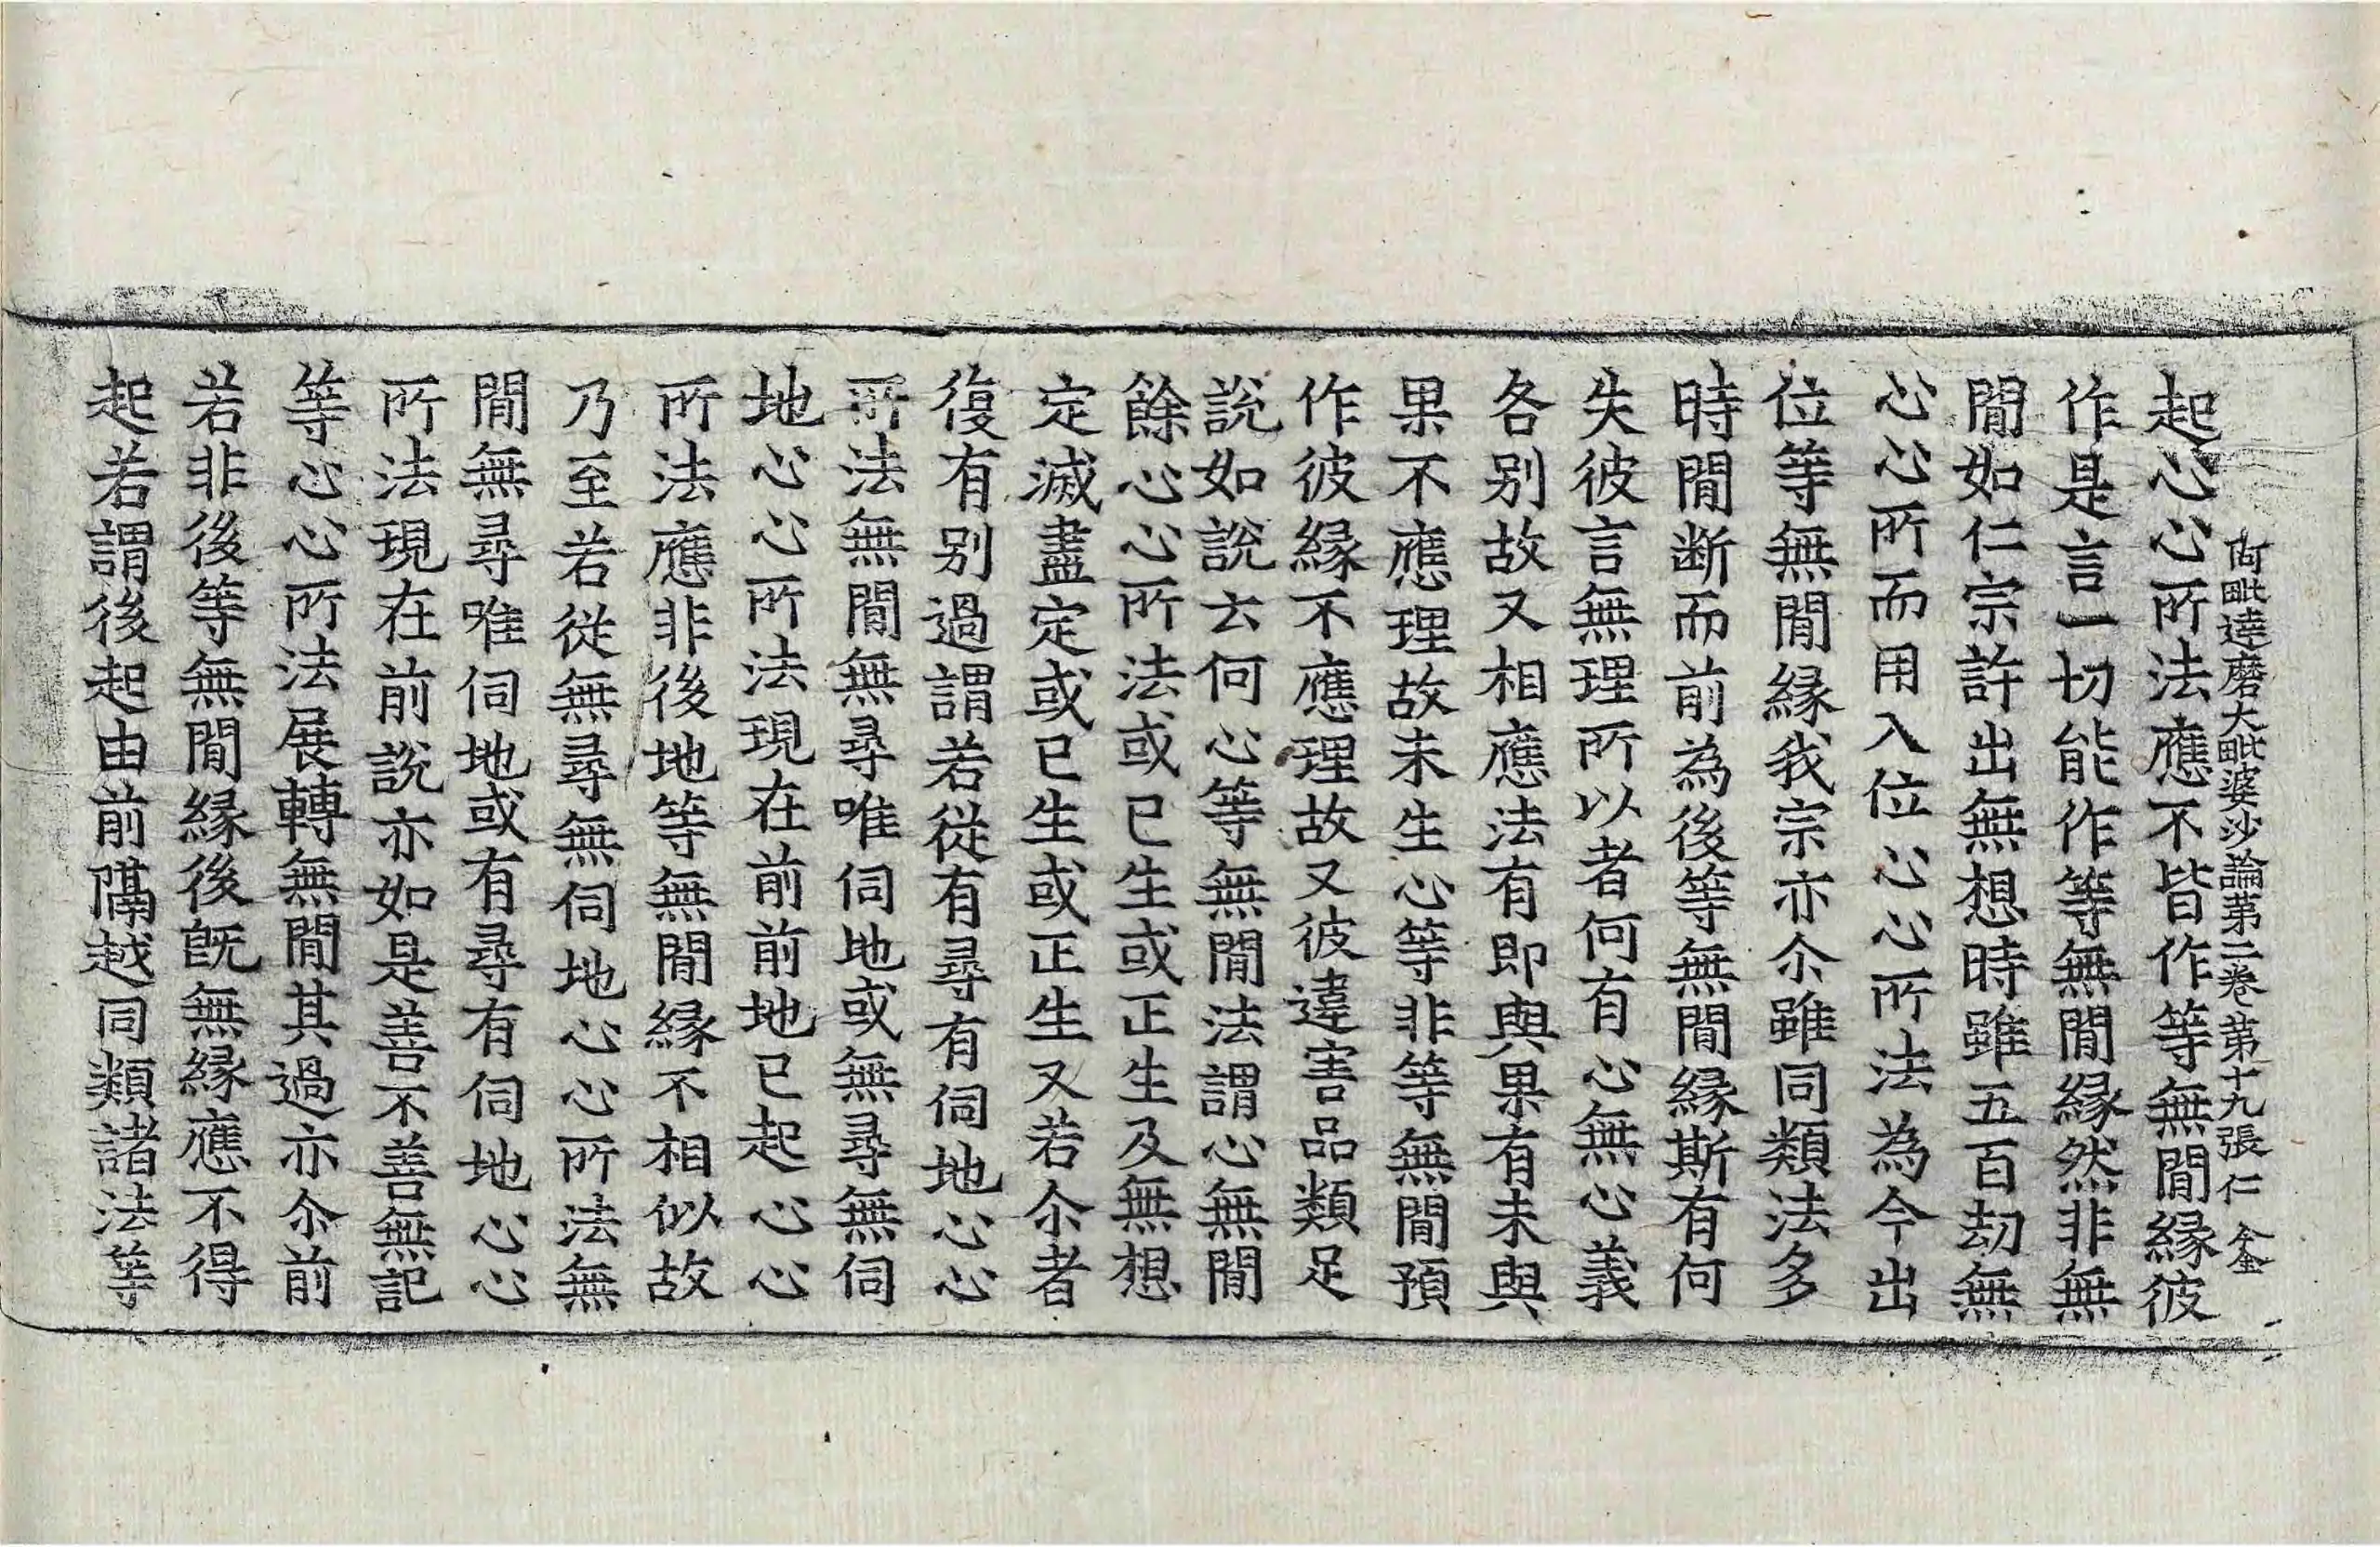 起心心所法應不皆作等無間縁彼
阿毗達磨大毗婆沙論第二卷第十九張仁 金
作是言一切能作等無間縁然非無
間如仁宗許出無想時雖五百劫無
心心所而用入位心心所法為今出
位等無間縁我宗亦尒雖同類法多
時間断而前為後等無間縁斯有何
失彼言無理所以者何有心無心義
各别故又相應法有即與果有未與
果不應理故未生心等非等無間預
作彼縁不應理故又彼違害品類足
說如說云何心等無間法謂心無間
餘心心所法或已生或正生及無想
定滅盡定或已生或正生又若尒者
復有别過謂若從有尋有伺地心心
所法無間無尋唯伺地或無尋無伺
地心心所法現在前前地已起心心
所法應非後地等無間縁不相似故
乃至若從無尋無伺地心心所法無
間無尋唯伺地或有尋有伺地心心
所法現在前說亦如是善不善無記
等心心所法展轉無間其過亦尒前
若非後等無間縁後旣無縁應不得
起若謂後起由前隔越同類諸法等